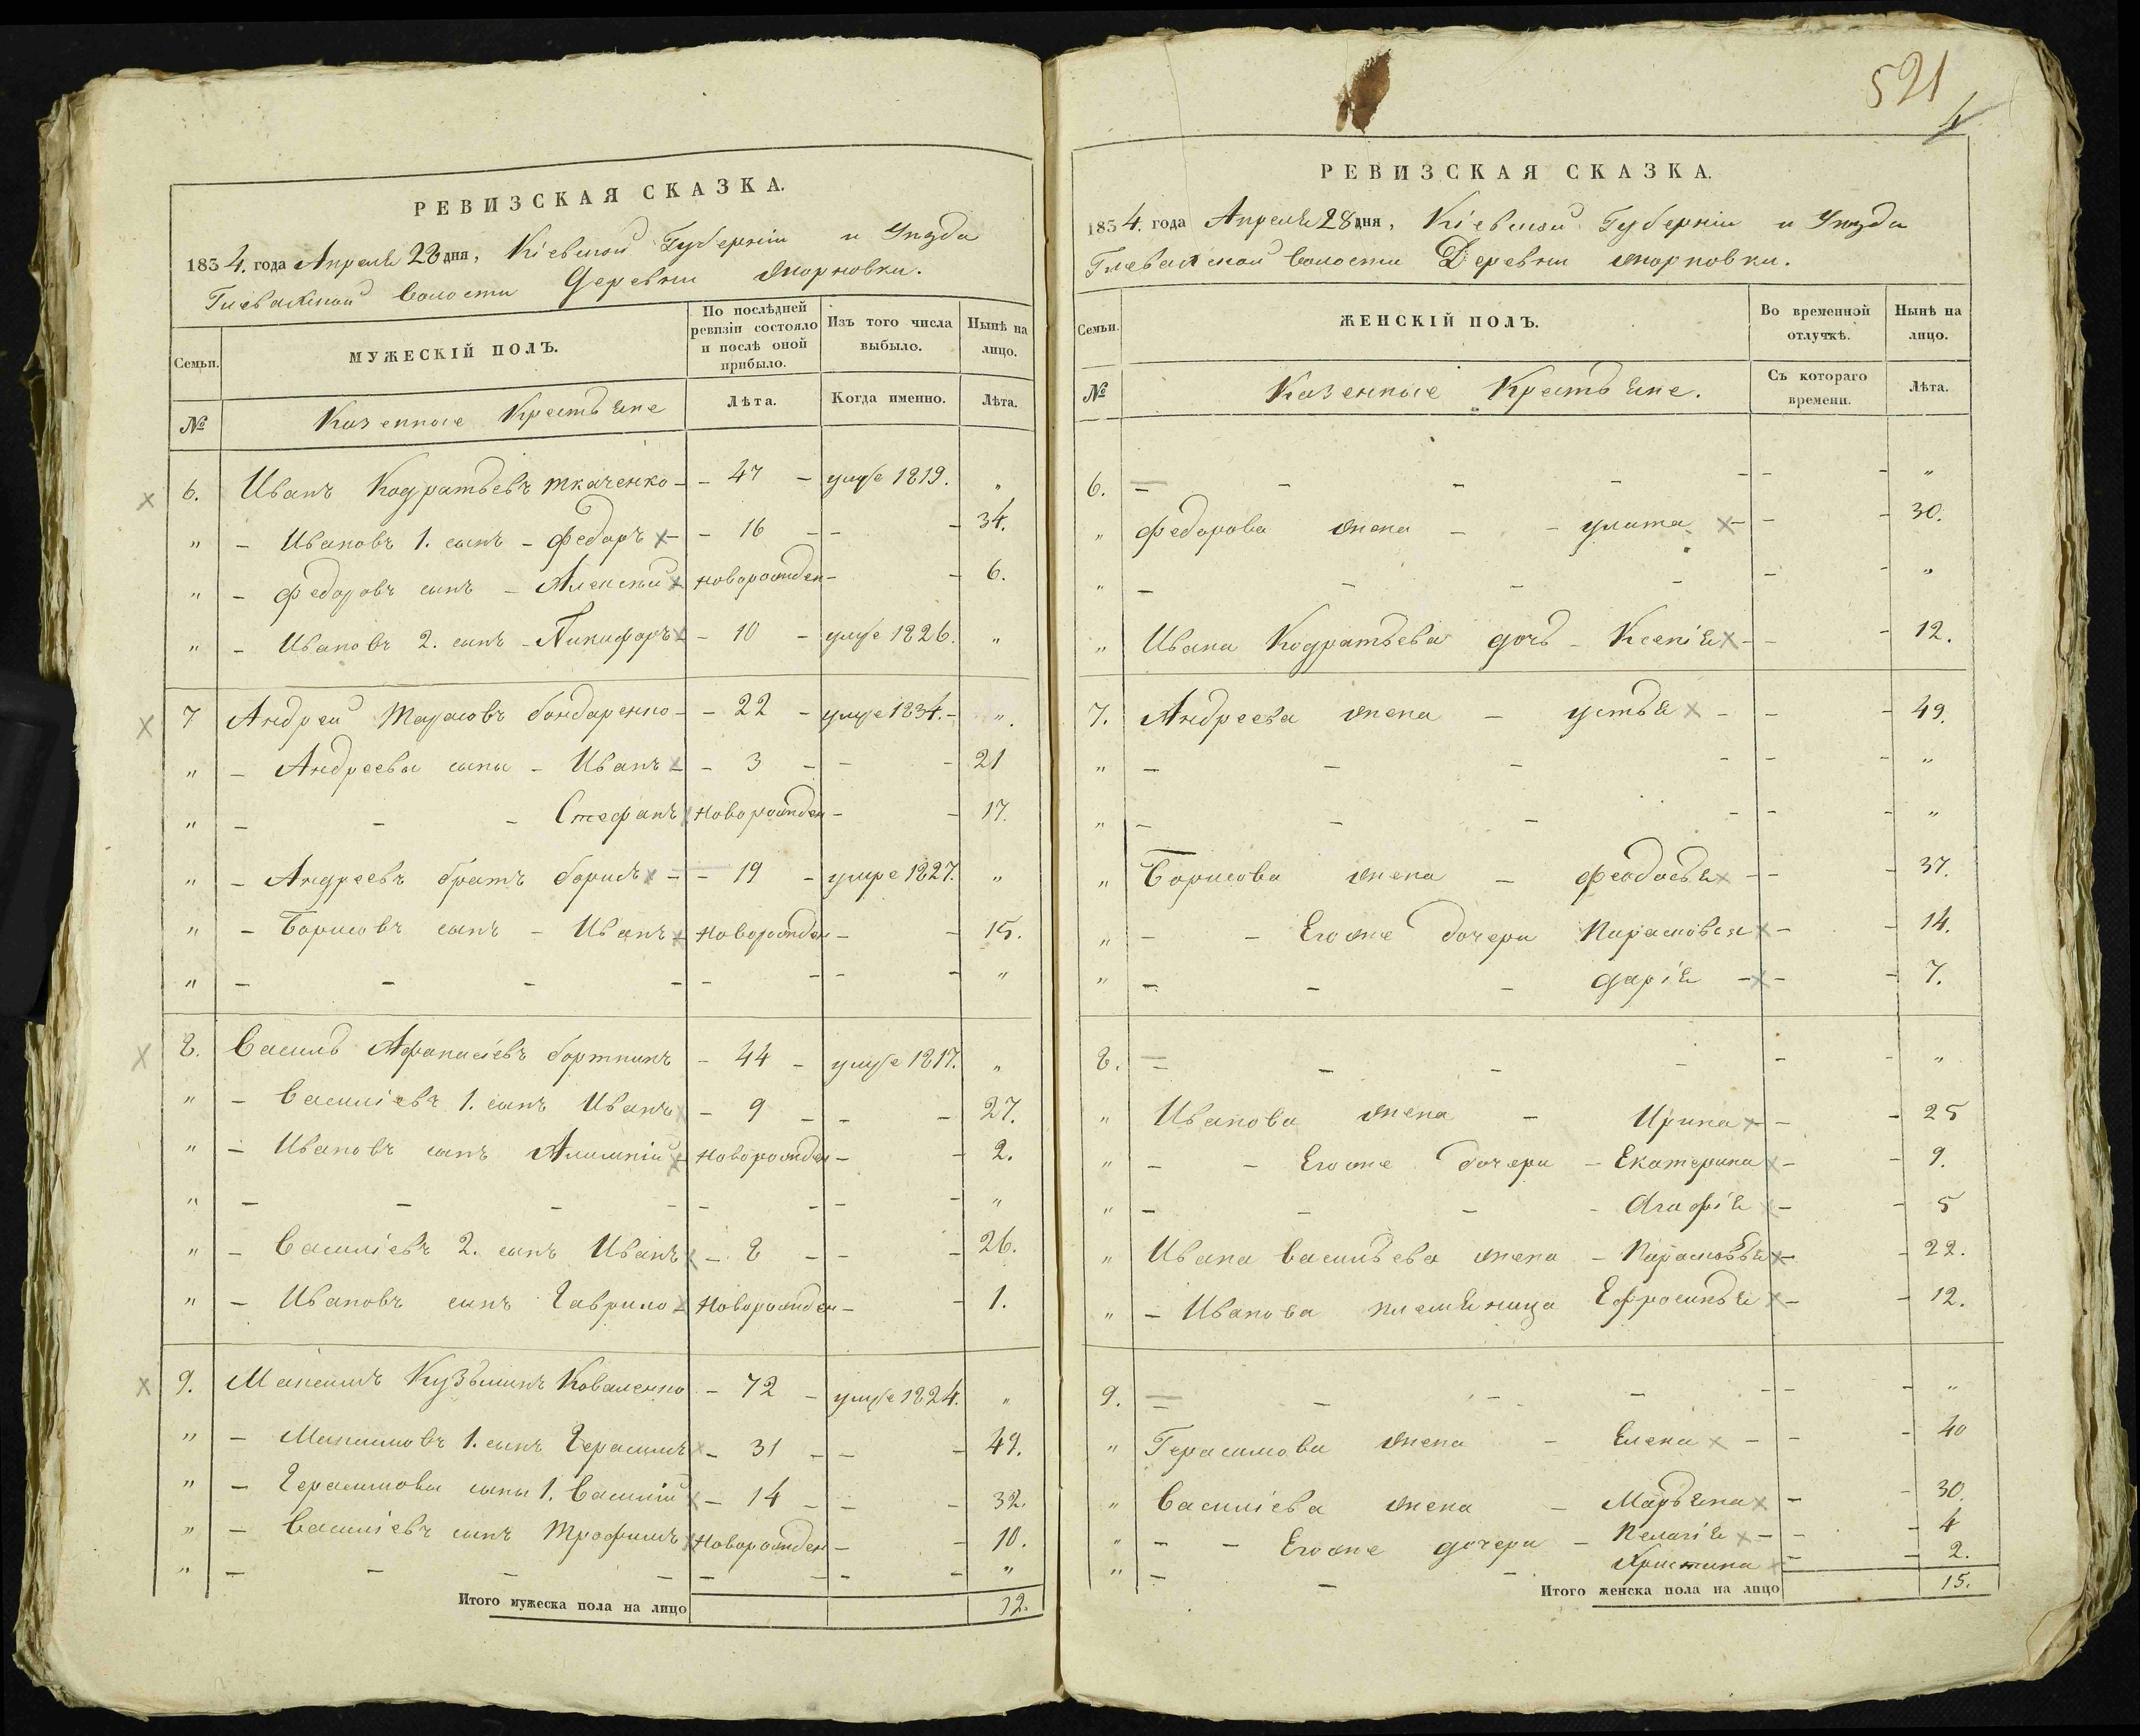 РЕВИЗСКАЯ СКАЗКА.
1834. года Апреля 28 дня, Кіевской Губерніи и Уезда
Волости Деревни Жорновки.
Семьи. МУЖЕСКІЙ ПОЛЪ. По послѣдней ревизіи состояло и послѣ оной прибыло. Изъ того числа выбыло. Нынѣ на лицо.
№ Казенные Крестьяне Лѣта. Когда именно. Лѣта.
6. Иванъ Кодратьевъ Ткаченко - - 47 - умре 1819. "
" - Ивановъ 1. сынъ - Федоръ x - - 16 - - - 34.
" - Федоровъ сынъ - Алексей x новорожден - - 6.
" - Ивановъ 2. сынъ - Никифоръ x - 10 - умре 1826. "
7 Андрей Тарасовъ бондаренко - - 22 - умре 1834. - "
" - Андреевы сыны - Иванъ x - 3 - - - 21
" - - - Стефанъ новорожден - - 17.
" - Андреевъ братъ борисъ x - - 19 - умре 1827. "
" - Борисовъ сынъ - Иванъ x новорожден - - 15.
" - - - - - - - - "
8. Василь Афанасіевъ бортникъ - 44 - умре 1817. "
" - Василіевъ 1. сынъ Иванъ x - 9 - - - 27.
" - Ивановъ сынъ x новорожден - - 2.
" - - - - - - - - "
" - Василіевъ 2. сынъ Иванъ x - 8 - - - 26.
" - Ивановъ сынъ Гаврило x новорожден - - 1.
9. Максимъ Кузьминъ Коваленко - 72 - умре 1824. "
" - Максимовъ 1. сынъ Герасимъ x - 31 - - - 49.
" - Герасимовы сыны 1. Василій x - 14 - - - 32.
" - Василіевъ сынъ Трофимъ x новорожден - - 10.
" - - - - - - - - "
Итого мужеска пола на лицо 12.
521
4
РЕВИЗСКАЯ СКАЗКА.
1834. года Апреля 28 дня, Кіевской Губерніи и Уезда
Волости Деревни Жорновки.
Семьи. ЖЕНСКІЙ ПОЛЪ. Во временной отлучкѣ. Нынѣ на лицо.
№ Казенные Крестьяне. Съ котораго времени. Лѣта.
6. - - - - - - - "
" Федорова жена - - улита x - - - 30.
" - - - - - - "
" Ивана Кодратьева дочь - Ксенія x - - - 12.
7. Андреева жена - устья x - - - 49.
" - - - - - - "
" - - - - - - "
" Борисова жена - феодосья x - - - 37.
" - - Егоже дочери Парасковея x - - 14.
" - - - дарія - x - - 7.
8. - - - - - - "
" Иванова жена - Ирина x - - 25
" - - Егоже дочери - Екатерина x - - 9.
" - - - - Агафія x - - 5
" Ивана Васильева жена - Парасковья x - - 22.
" - Иванова племяница Ефросинья x - - 12.
9. - - - - - - - "
" Герасимова жена - Елена x - - - 40
" Василіева жена - Марьяна x - - 30.
" - - Егоже дочери - Пелагія x - - - 4
" - - - Христина x - - 2.
Итого женска пола на лицо 15.